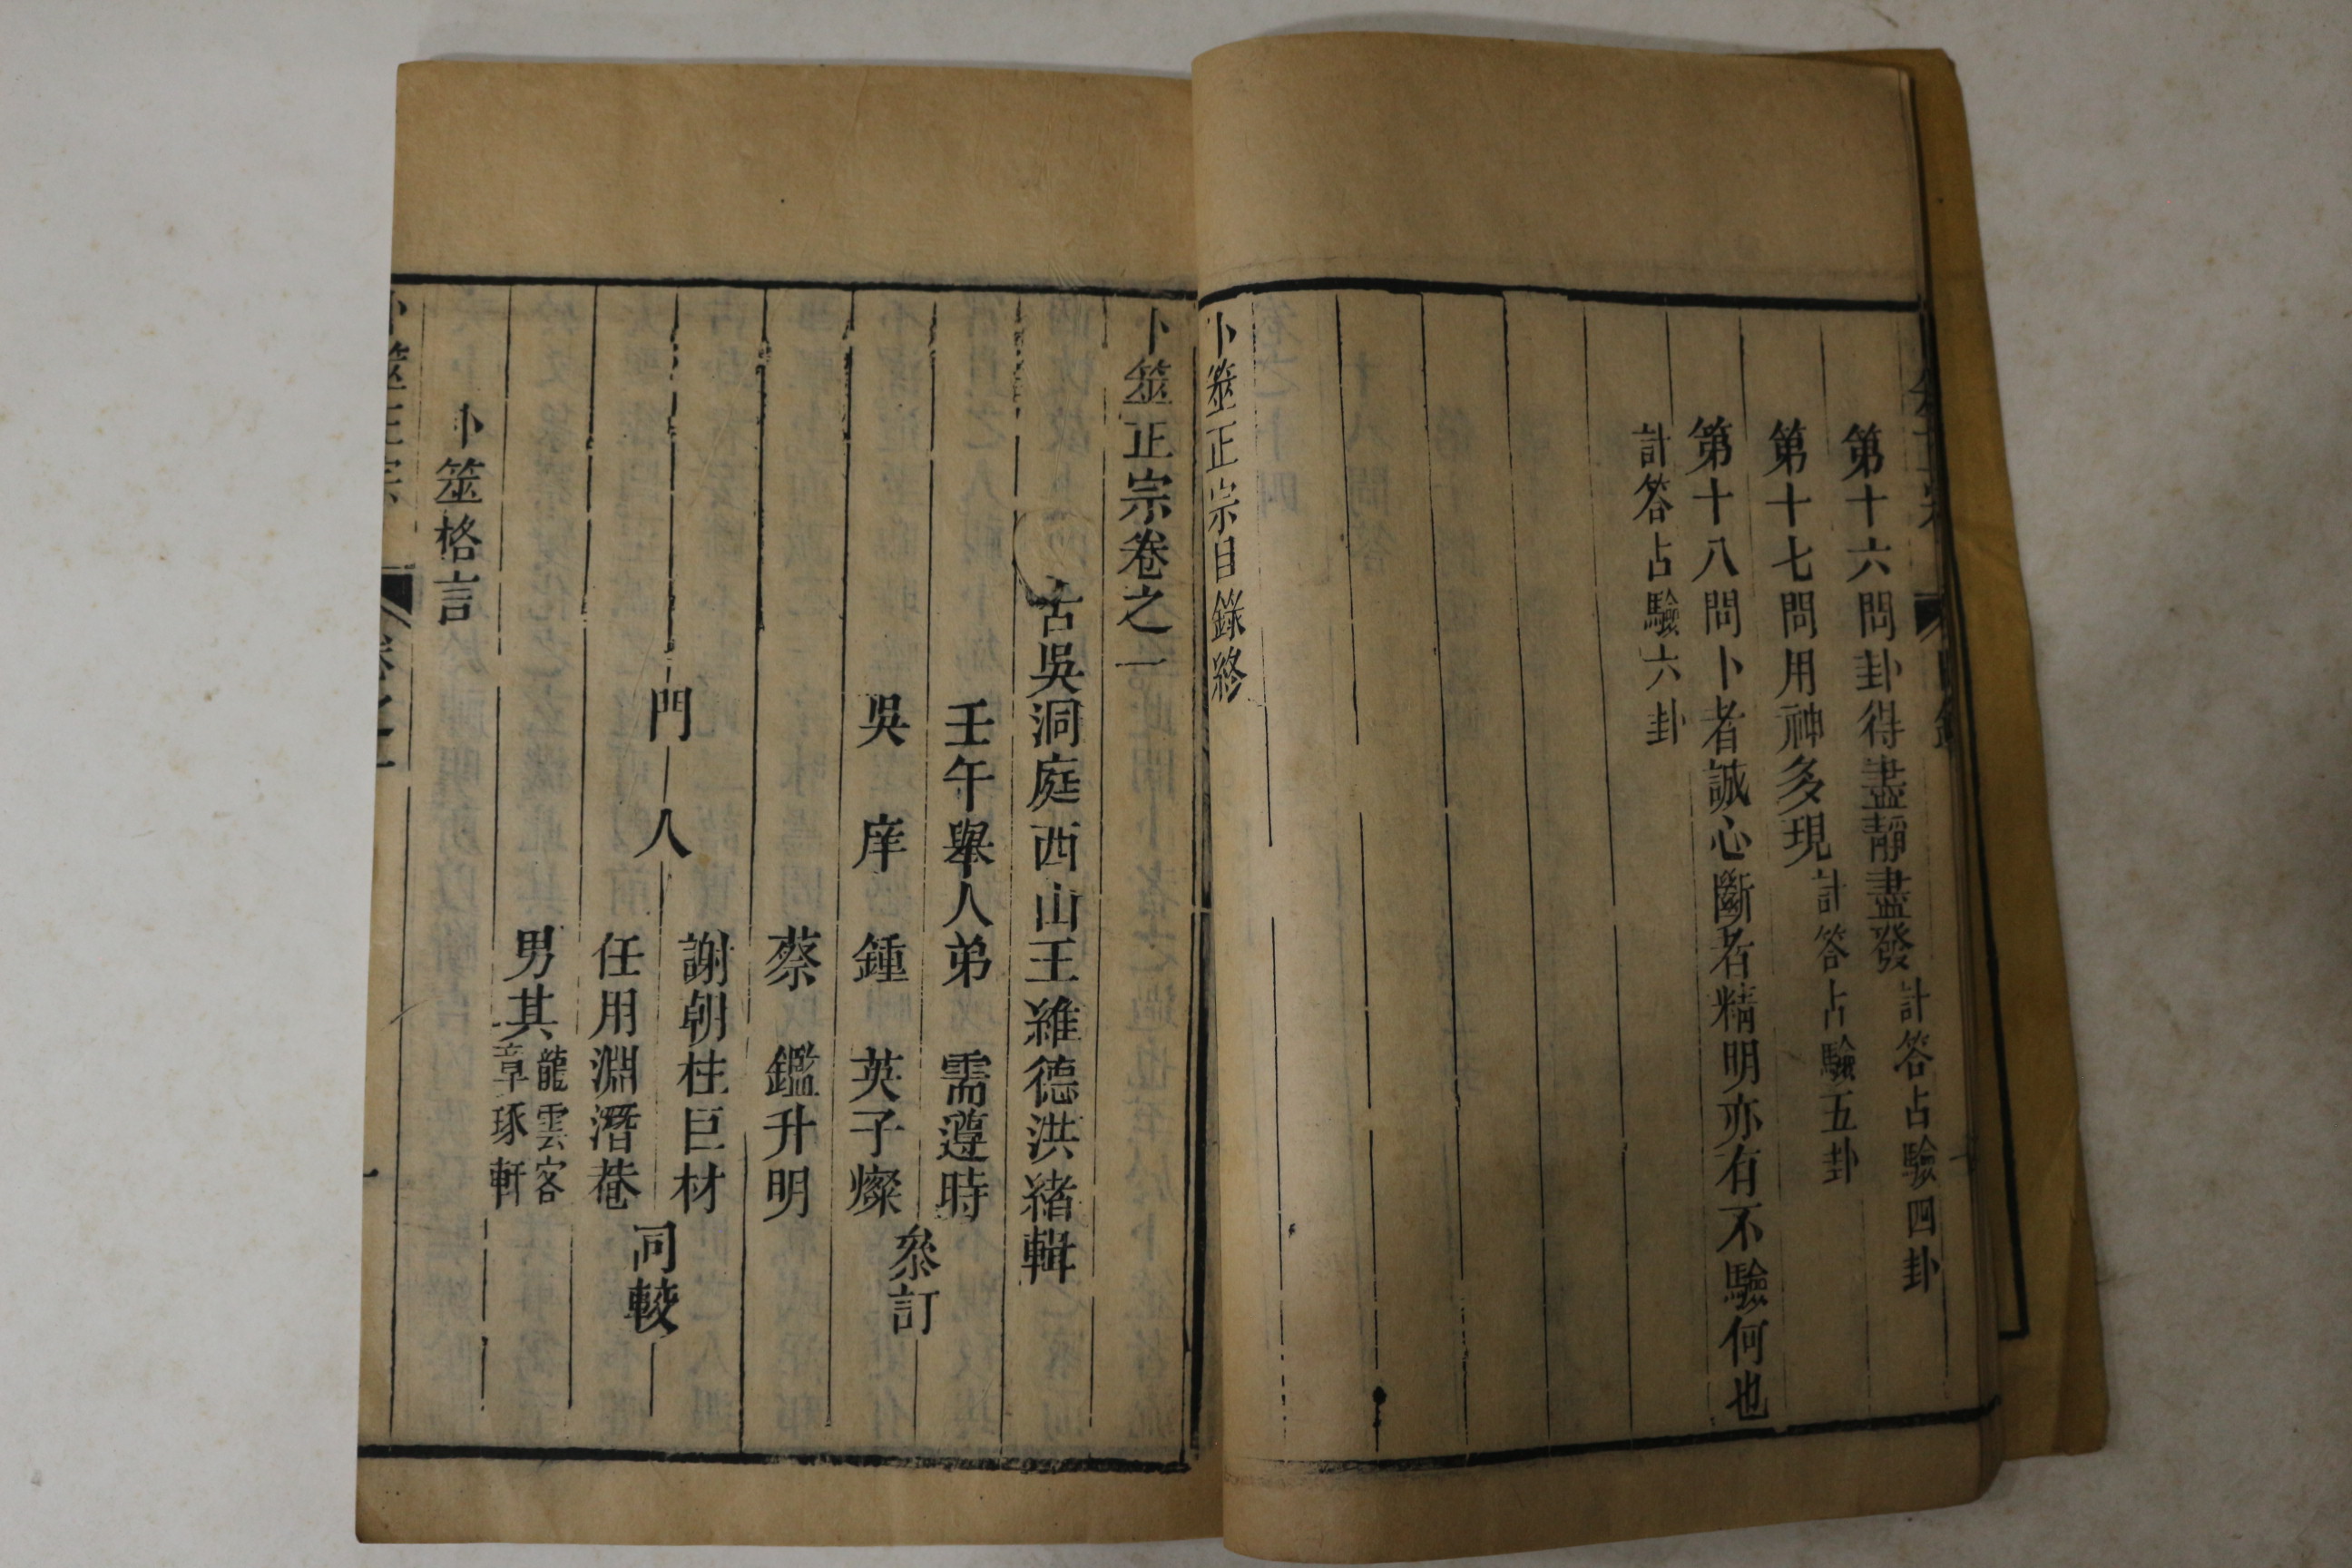 第十六問卦得盡靜盡發計答占驗四卦
第十七問用神多現計答占驗五卦
第十八問卜者誠心斷者精明亦有不驗何也
計答占驗六卦
卜筮正宗目錄終
卜筮正宗卷之一
古吳洞庭西山王維德洪緒輯
壬午舉人弟 需遵時
吳 庠 鍾 英子燦
參訂
蔡 鑑升明
謝朝柱巨材
門 人
同較
任用淵潛菴
男其龍雲客
章琢軒
卜筮格言
卜筮正宗 卷之一 一